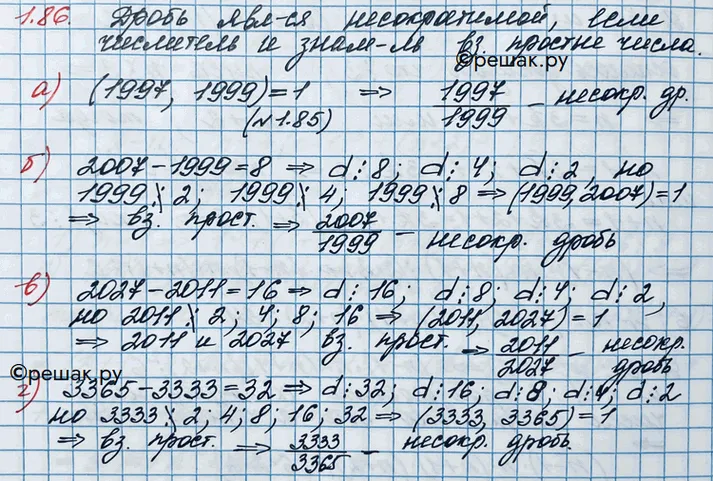 1.86. Дробь явл-ся несократимой, если
числитель и знам-ль вз. простые числа.
©решак.ру
а) (1997, 1999)=1 ⇒ 1997/1999 – несокр. др.
(№1.85)
б) 2007-1999=8 ⇒ d⋮8; d⋮4; d⋮2, но
1999⋮̸2; 1999⋮̸4; 1999⋮̸8 ⇒ (1999, 2007)=1
⇒ вз. прост. ⇒ 2007/1999 – несокр. дробь
в) 2027-2011=16 ⇒ d⋮16; d⋮8; d⋮4; d⋮2,
но 2011⋮̸2; 4; 8; 16 ⇒ (2011, 2027)=1
⇒ 2011 и 2027 вз. прост. ⇒ 2011/2027 – несокр. дробь
©решак.ру
г) 3365-3333=32 ⇒ d⋮32; d⋮16; d⋮8; d⋮4; d⋮2
но 3333⋮̸2; 4; 8; 16; 32 ⇒ (3333, 3365)=1
⇒ вз. прост. ⇒ 3333/3365 – несокр. дробь.